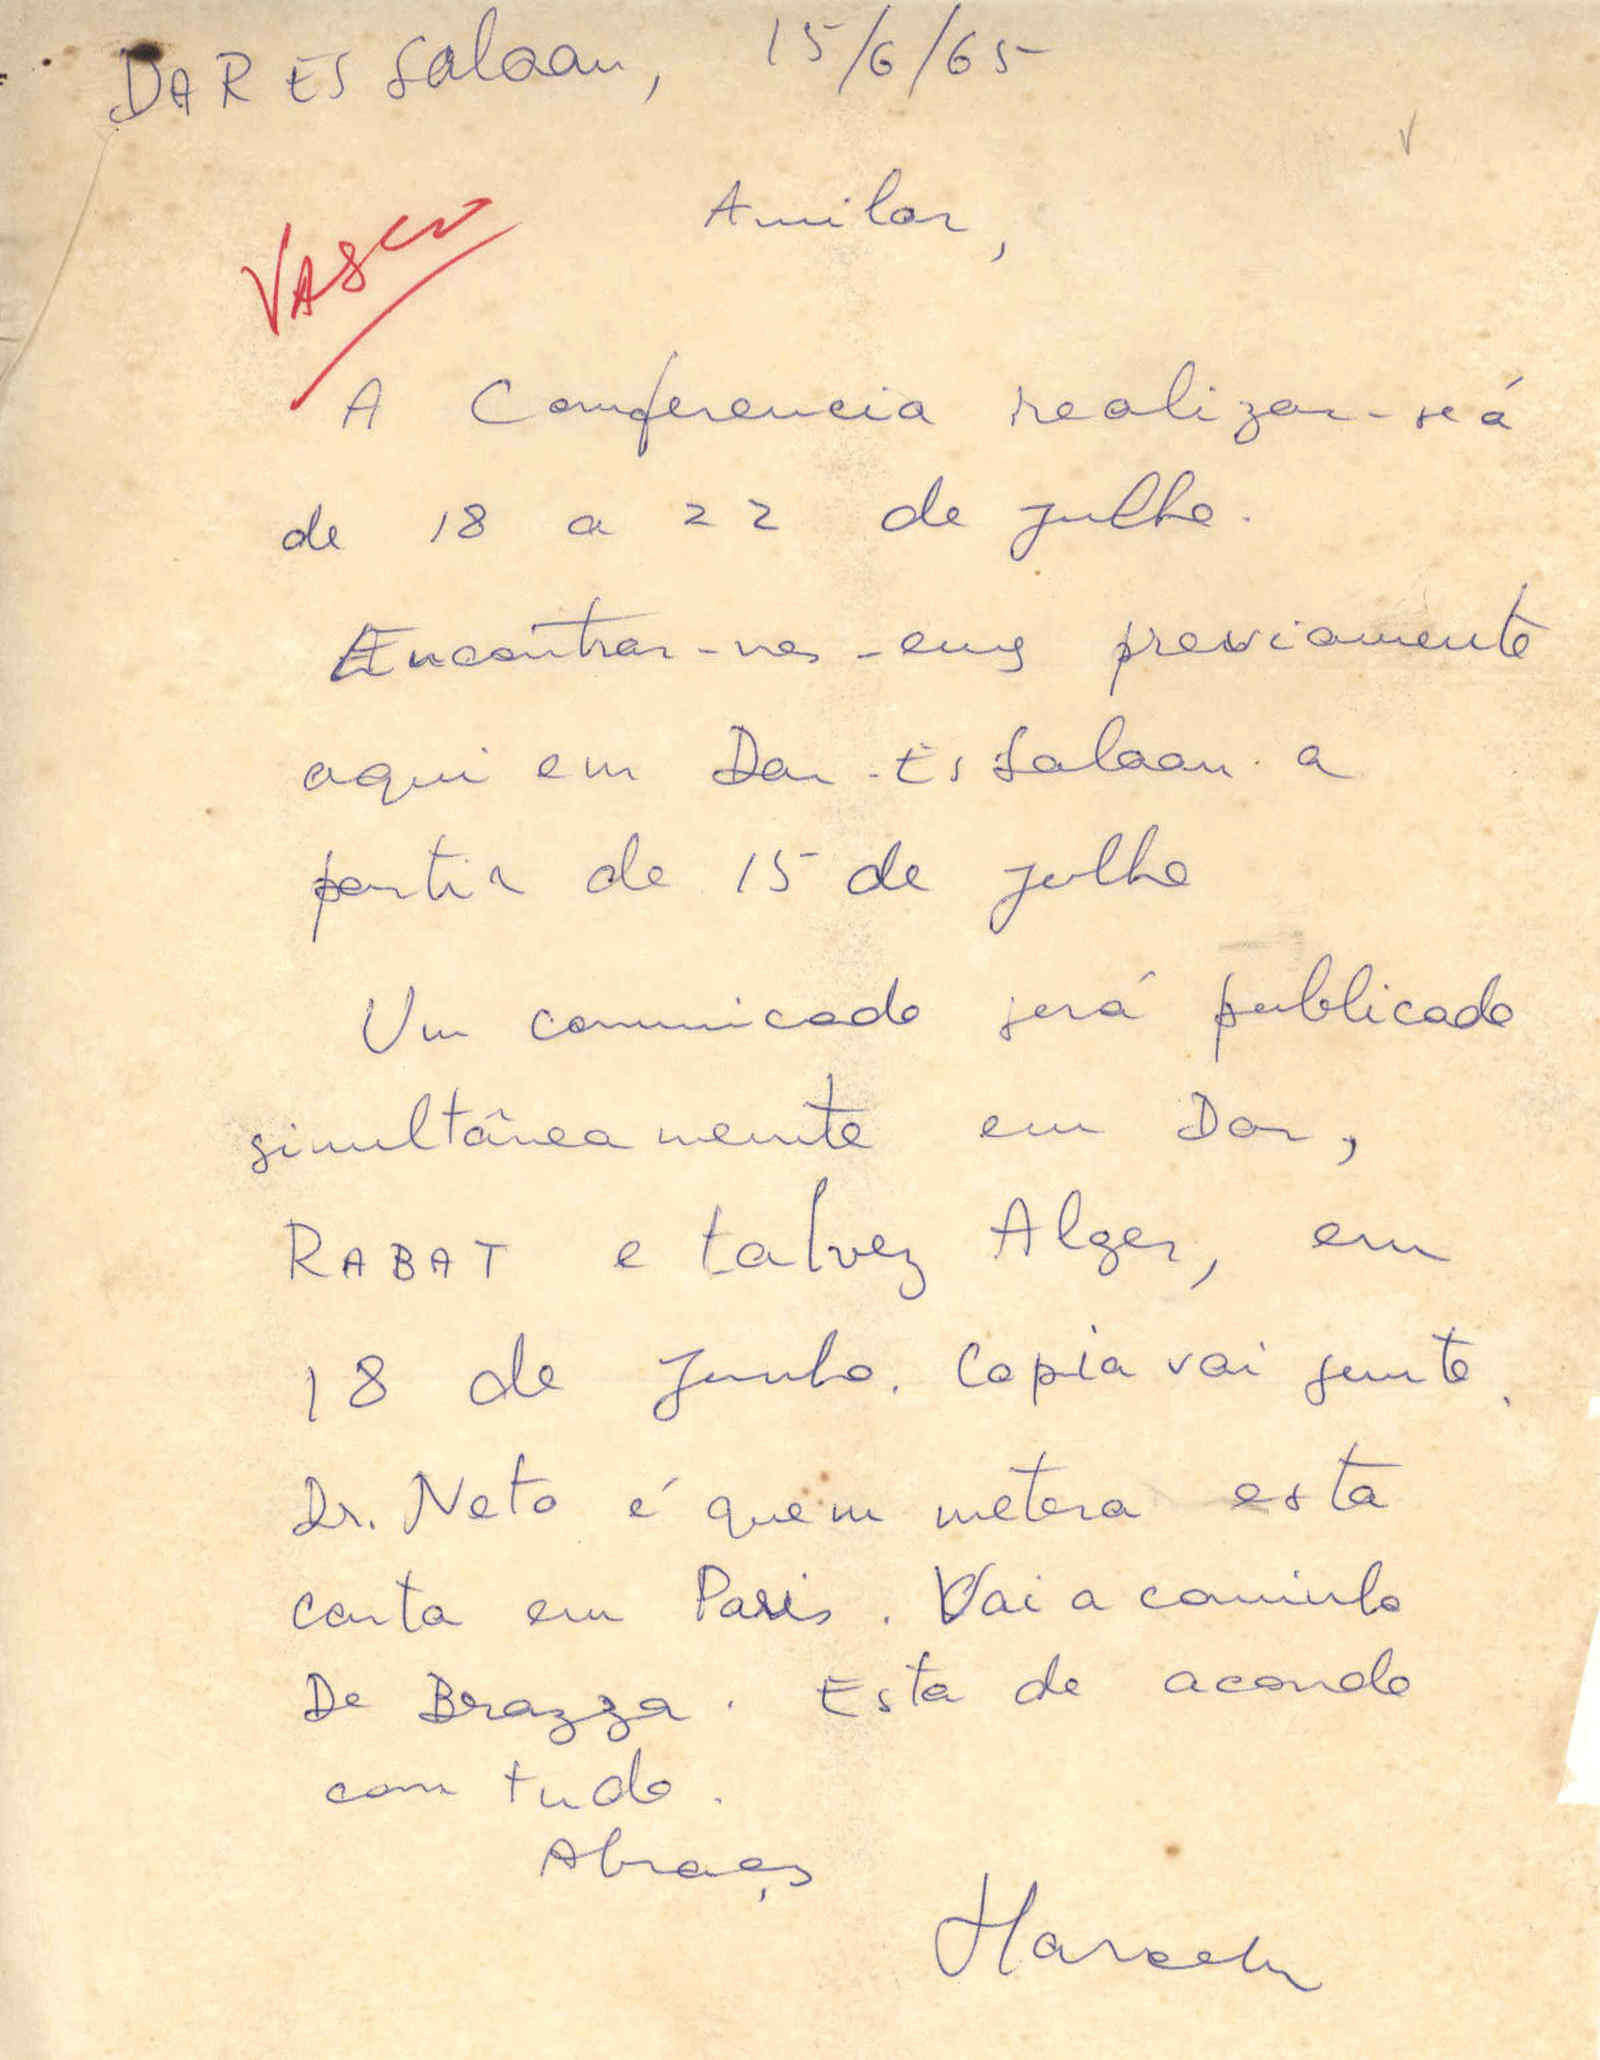 DAR ES Salaam, 15/6/65
Amilcar,
VASCO
A Conferencia realizar-se á
de 18 a 22 de julho.
Encontrar-nos-emos previamente
aqui em Dar-Es Salaam a
partir de 15 de julho
Um comunicado será publicado
simultâneamente em Dar,
RABAT e talvez Alger, em
18 de Junho. Copia vai junto.
Dr. Neto é quem metera esta
carta em Paris. Vai a caminho
De Brazza. Esta de acordo
com tudo.
Abraços
Marcelino